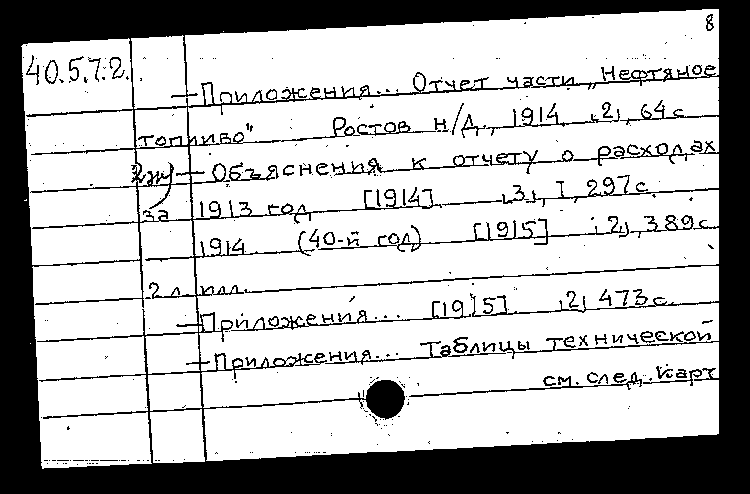 8
40.5.7.2.
— Приложения... Отчет части „Нефтяное
топливо" Ростов н/Д., 1914. ‚2‚, 64 с
2ж) — Объяснения к отчету о расходах
за 1913 год [1914]. ‚3‚, I, 297 с.
1914 (40-й год) [1915] ‚2‚, 389 с.
2 л. илл.
— Приложения... [1915] ‚2‚ 473 с.
— Приложения... Таблицы технической
см. след. карт